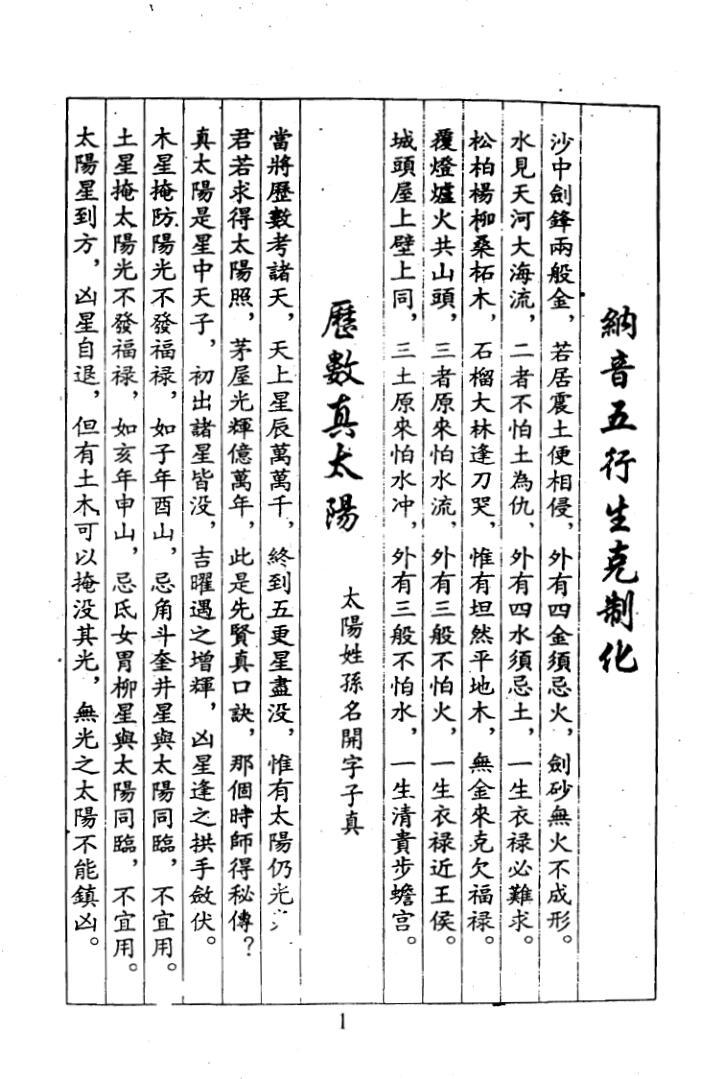 納音五行生克制化
沙中劍鋒兩般金，若居震土便相侵，外有四金須忌火，劍砂無火不成形。
水見天河大海流，二者不怕土為仇，外有四水須忌土，一生衣禄必難求。
松柏楊柳桑柘木，石榴大林逢刀哭，惟有坦然平地木，無金來克欠福禄。
覆燈爐火共山頭，三者原來怕水流，外有三般不怕火，一生衣禄近王侯。
城頭屋上壁上同，三土原來怕水冲，外有三般不怕水，一生清貴步蟾宫。
歷數真太陽 太陽姓孫名開字子真
當將歷數考諸天，天上星辰萬萬千，終到五更星盡没，惟有太陽仍光
君若求得太陽照，茅屋光輝億萬年，此是先賢真口訣，那個時師得秘傳？
真太陽是星中天子，初出諸星皆没，吉曜遇之增輝，凶星逢之拱手斂伏。
木星掩防陽光不發福禄，如子年酉山，忌角斗奎井星與太陽同臨，不宜用。
土星掩太陽光不發福禄，如亥年申山，忌氐女胃柳星與太陽同臨，不宜用。
太陽星到方，凶星自退，但有土木可以掩没其光，無光之太陽不能鎮凶。
1